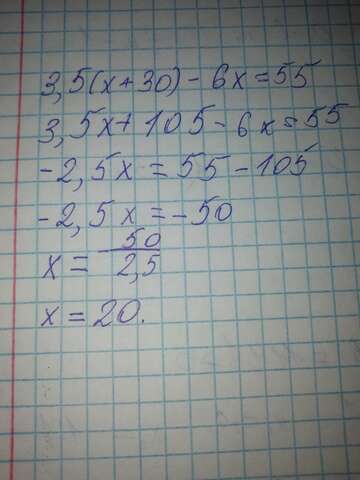 3,5(x+30)-6x=55
3,5x+105-6x=55
-2,5x=55-105
-2,5x=-50
x=50/2,5
x=20.